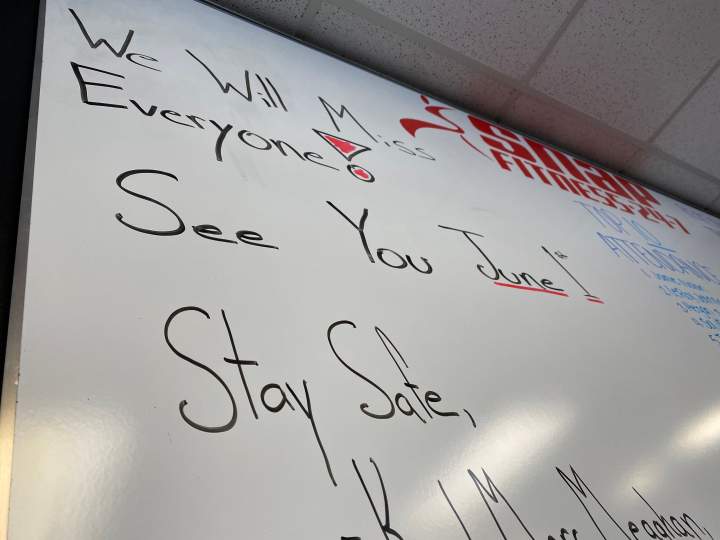 We Will Miss
Everyone!
See You June 1st
Stay Safe,
snap
FITNESS-24-7
TOP 10
ATTENDANCE
Meaghan,